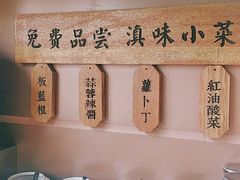 免费品尝 滇味小菜
板藍根
蒜蓉辣醬
蘿卜丁
紅油酸菜